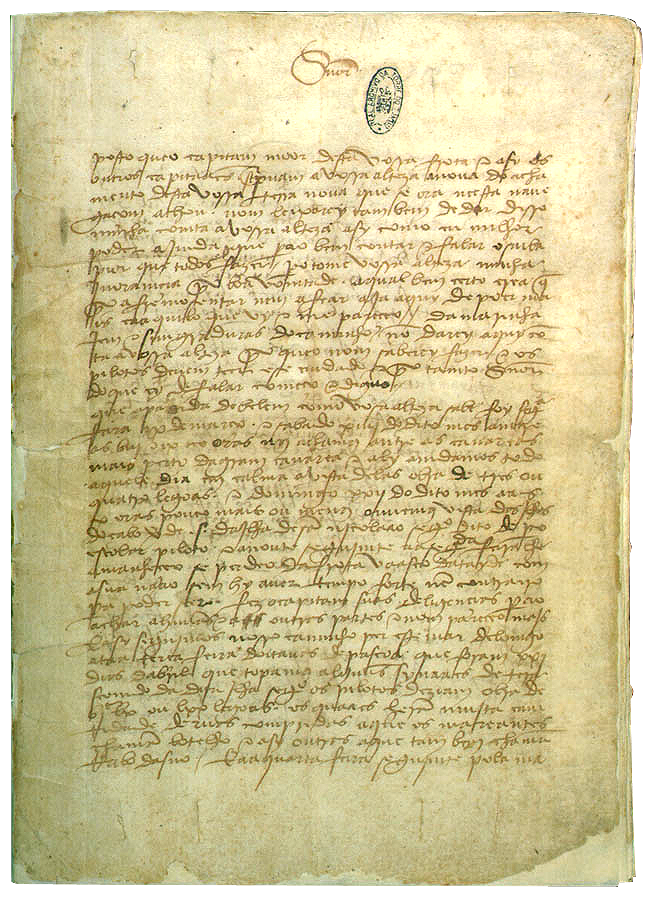 Snõr
posto queo capitam moor desta vossa frota e asy os
outros capitaães screpuam a vossa alteza a noua do acha
mento desta vossa terra noua que se ora neesta naue
gaçam achou. nom leixarey tambem de dar disso
minha comta a vossa alteza asy como eu milhor
poder ajmda que pera o bem contar e falar o saiba
pior que todos fazer. pero tome vossa alteza minha
jnoramçia por boa vomtade. a qual bem çerto crea q̃
por afremosentar nem afear aja aquy de poer ma
is caaquilo que vy e me pareçeo / da marinha
jem e simgraduras do caminho nõ darey aquy cõ
ta a vossa alteza por que o nom saberey fazer e os
pilotos deuem teer ese cuidado e por tanto Snõr
do que ey de falar começo e diguo /
que a partida de belem como vosa alteza sabe foy segª
feira ix de março. e sabado xiiij do dito mes amtre
as biij e ix oras nos achamos amtre as canareas
mais perto da gram canarea e aly amdamos todo
aquele dia em calma a vista delas obra de tres ou
quatro legoas. e domingo xxij do dito mes aas
x oras pouco mais ou menos ouuemos vista das jlhas
do cabo verde .s. da jlha de sã njcolaao segº dito de pº
escolar piloto. e a noute segujmte aa segª feira lhe
amanheçeo se perdeo da frota vaasco datayde com
a sua naao sem hy auer tempo forte nẽ contrairo
pera poder seer. fez o capitam suas deligençias pera o
achar a huũas e a outras partes e nom pareçeo mais
E asy segujmos nosso caminho per este mar delomgo
ataa terça feira doitauas de pascoa que foram xxj
dias dabril que topamos alguũs synaaes de tera
seemdo da dita jlha segº os pilotos deziam obra de
bjᶜ lx ou lxx legoas. os quaaes heram mujta cam
tidade deruas compridas a que os mareantes
chamã botelho e asy outras a que tam bem chamã
rrabo dasno / E aa quarta feira segujmte pola ma